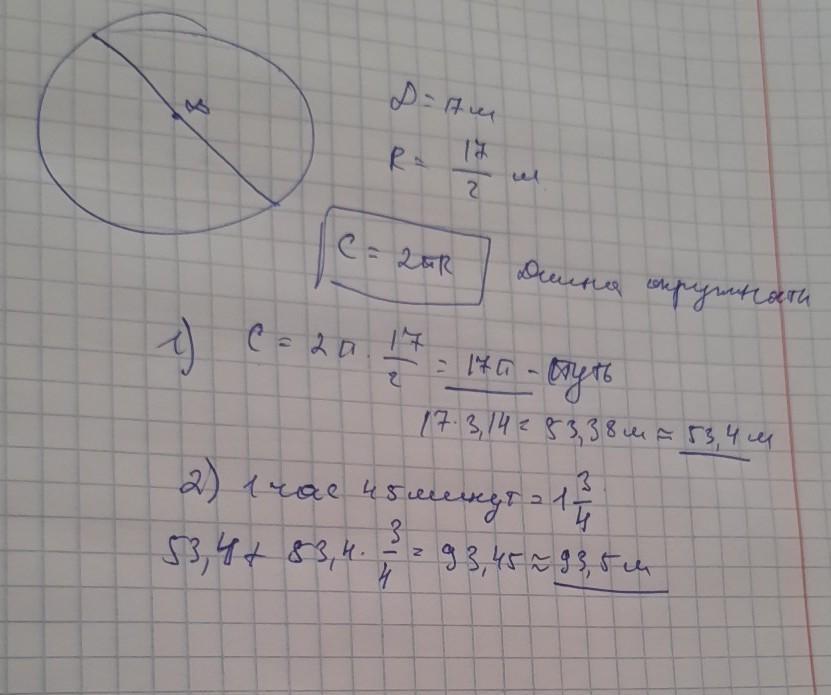 D = 17 м
R = 17/2 м
C = 2πR Длина окружности
1) C = 2π · 17/2 = 17π - путь
17 · 3,14 = 53,38 м ≈ 53,4 м
2) 1 час 45 минут = 1 3/4
53,4 + 53,4 · 3/4 = 93,45 ≈ 93,5 м